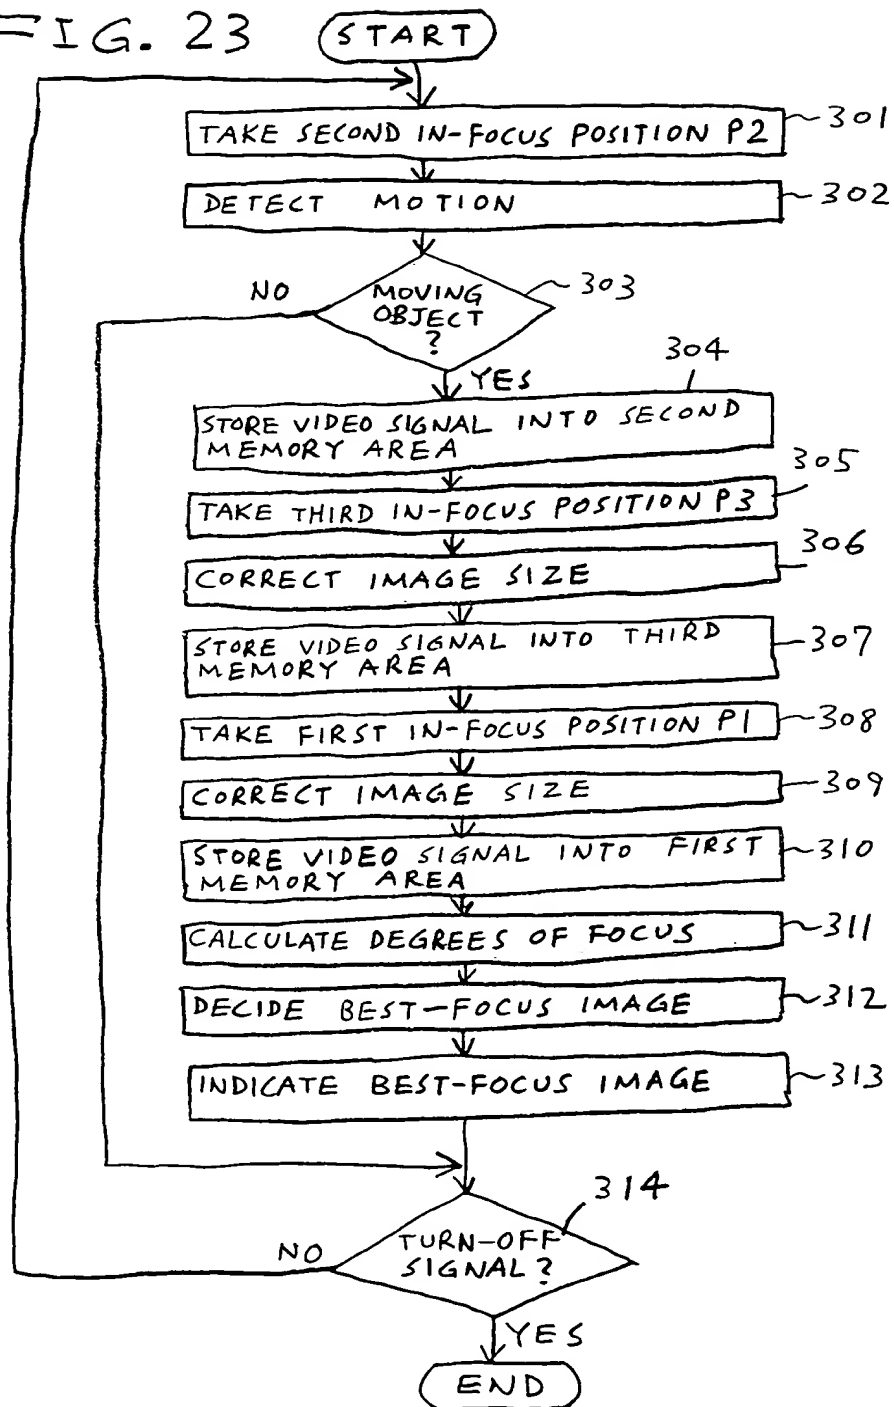 FIG. 23
START
TAKE SECOND IN-FOCUS POSITION P2
301
DETECT MOTION
302
MOVING
OBJECT
?
303
NO
YES
304
STORE VIDEO SIGNAL INTO SECOND
MEMORY AREA
305
TAKE THIRD IN-FOCUS POSITION P3
306
CORRECT IMAGE SIZE
STORE VIDEO SIGNAL INTO THIRD
MEMORY AREA
307
TAKE FIRST IN-FOCUS POSITION P1
308
CORRECT IMAGE SIZE
309
STORE VIDEO SIGNAL INTO FIRST
MEMORY AREA
310
CALCULATE DEGREES OF FOCUS
311
DECIDE BEST-FOCUS IMAGE
312
INDICATE BEST-FOCUS IMAGE
313
314
TURN-OFF
SIGNAL?
NO
YES
END